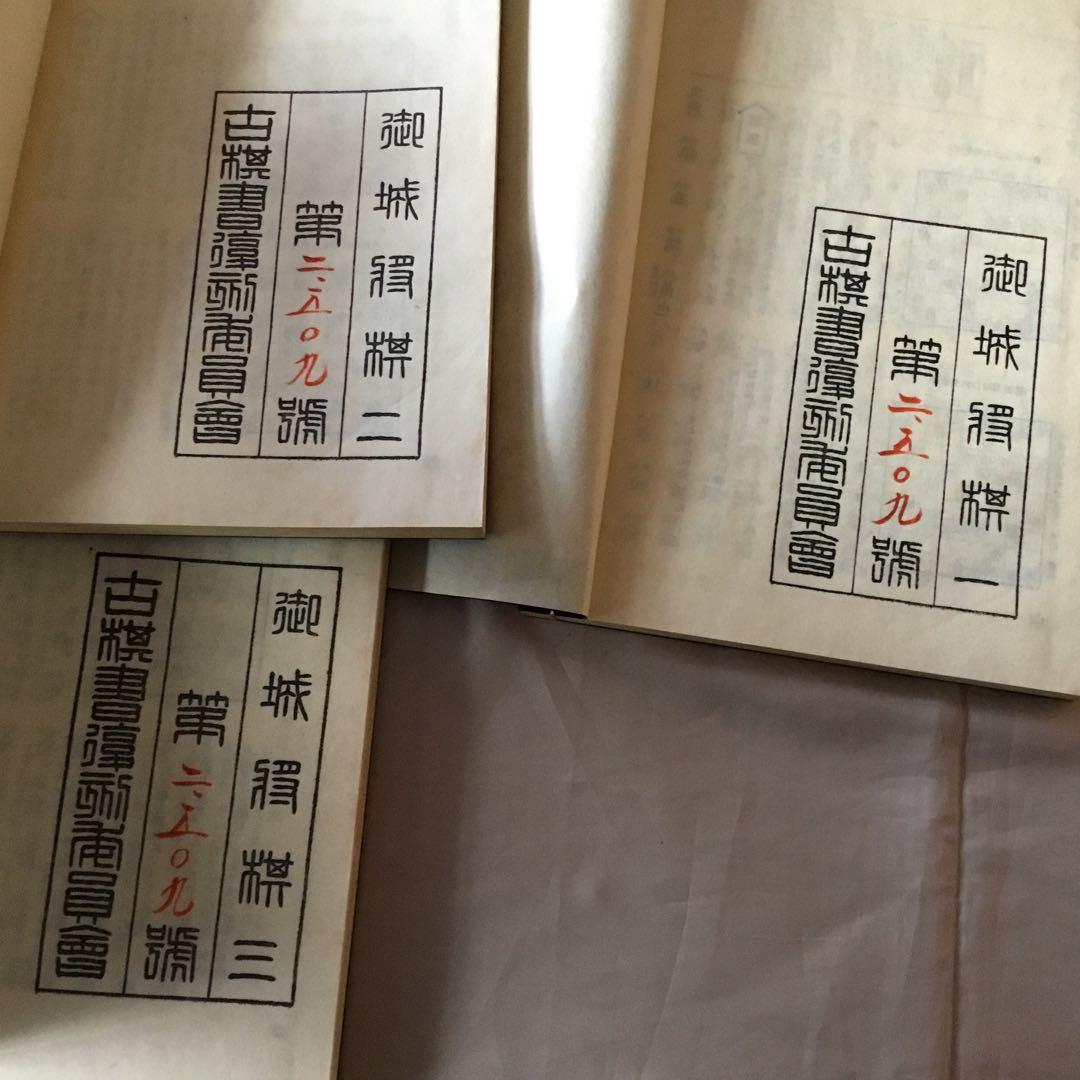 御城将棋 二
第二、五〇九號
古棋書復刻委員會
御城将棋 一
第二、五〇九號
古棋書復刻委員會
御城将棋 三
第二、五〇九號
古棋書復刻委員會